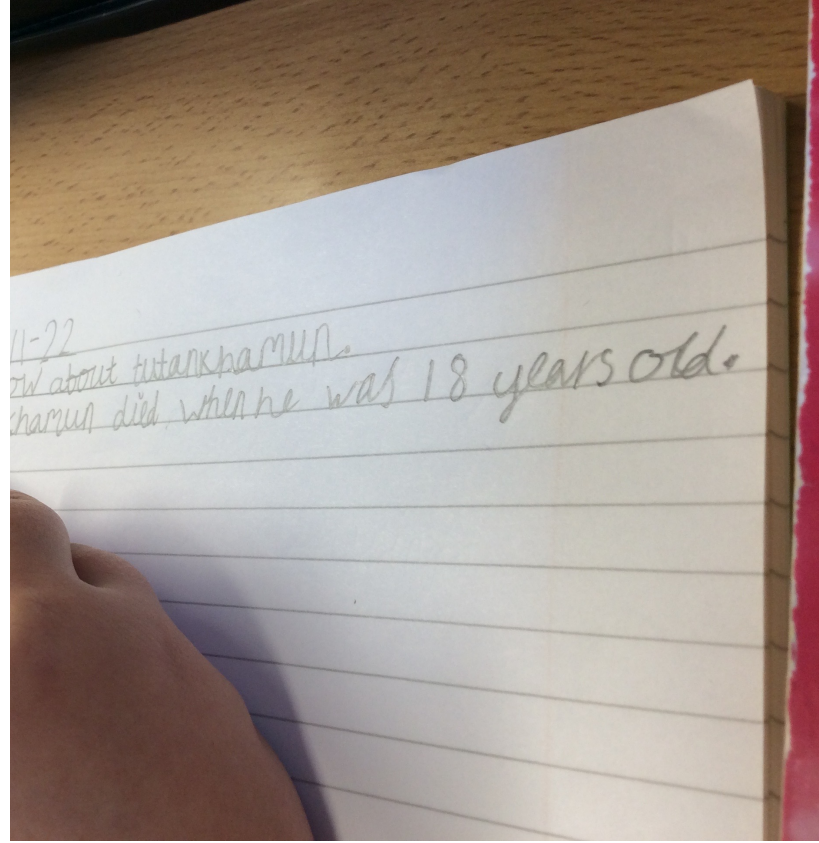 11-22
ow about tutankhamun.
hamun died when he was 18 years old.